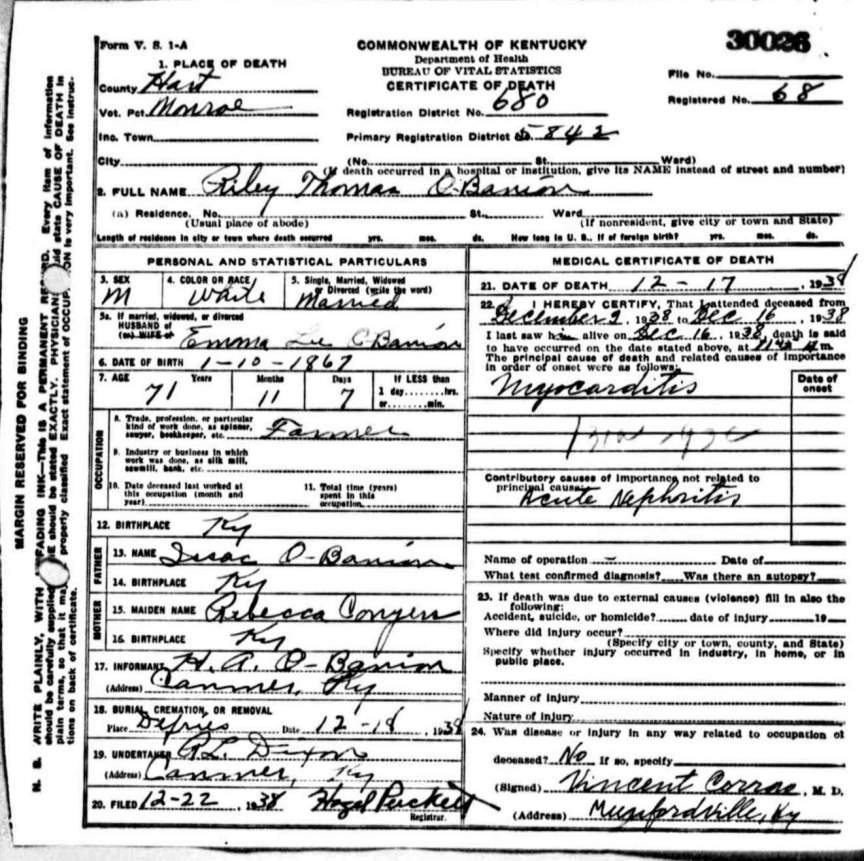 Form V. S. 1-A
COMMONWEALTH OF KENTUCKY
Department of Health
BUREAU OF VITAL STATISTICS
CERTIFICATE OF DEATH
30026
File No.
Registered No. 68
1. PLACE OF DEATH
County Hart
Vot. Pct. Monroe
Inc. Town
City
Registration District No. 680
Primary Registration District No. 5842
(No. St. Ward)
(If death occurred in a hospital or institution, give its NAME instead of street and number)
2. FULL NAME Riley Thomas O-Banion
(a) Residence. No. St., Ward
(Usual place of abode) (If nonresident, give city or town and State)
Length of residence in city or town where death occurred yrs. mos. ds. How long in U. S., if of foreign birth? yrs. mos. ds.
PERSONAL AND STATISTICAL PARTICULARS
3. SEX 4. COLOR OR RACE 5. Single, Married, Widowed
or Divorced (write the word)
M White Married
5a. If married, widowed, or divorced
HUSBAND of
(or) WIFE of Emma Lee O'Banion
6. DATE OF BIRTH 1-10-1867
7. AGE Years Months Days If LESS than
71 11 7 1 day........hrs.
or........min.
OCCUPATION
8. Trade, profession, or particular
kind of work done, as spinner,
sawyer, bookkeeper, etc. Farmer
9. Industry or business in which
work was done, as silk mill,
sawmill, bank, etc.
10. Date deceased last worked at
this occupation (month and
year)
11. Total time (years)
spent in this
occupation
12. BIRTHPLACE Ky
FATHER
13. NAME Isaac O-Banion
14. BIRTHPLACE Ky
MOTHER
15. MAIDEN NAME Rebecca Conyers
16. BIRTHPLACE Ky
17. INFORMANT H. A. O-Banion
(Address) Canmer, Ky
18. BURIAL, CREMATION, OR REMOVAL
Place Defries Date 12-18, 1938
19. UNDERTAKER R.L. Dixon
(Address) Canmer, Ky
20. FILED 12-22, 1938 Hazel Puckett
Registrar.
MEDICAL CERTIFICATE OF DEATH
21. DATE OF DEATH 12-17, 1938
22. I HEREBY CERTIFY, That I attended deceased from
December 9, 1938 to Dec 16, 1938
I last saw him alive on Dec 16, 1938, death is said
to have occurred on the date stated above, at m.
The principal cause of death and related causes of importance
in order of onset were as follows:
Date of
onset
Myocarditis
Contributory causes of importance not related to
principal cause:
Acute Nephritis
Name of operation - Date of
What test confirmed diagnosis? Was there an autopsy?
23. If death was due to external causes (violence) fill in also the
following:
Accident, suicide, or homicide? date of injury 19
Where did injury occur?
(Specify city or town, county, and State)
Specify whether injury occurred in industry, in home, or in
public place.
Manner of injury
Nature of injury
24. Was disease or injury in any way related to occupation of
deceased? No If so, specify
(Signed) Vincent Corrao, M. D.
(Address) Munfordville, Ky
MARGIN RESERVED FOR BINDING